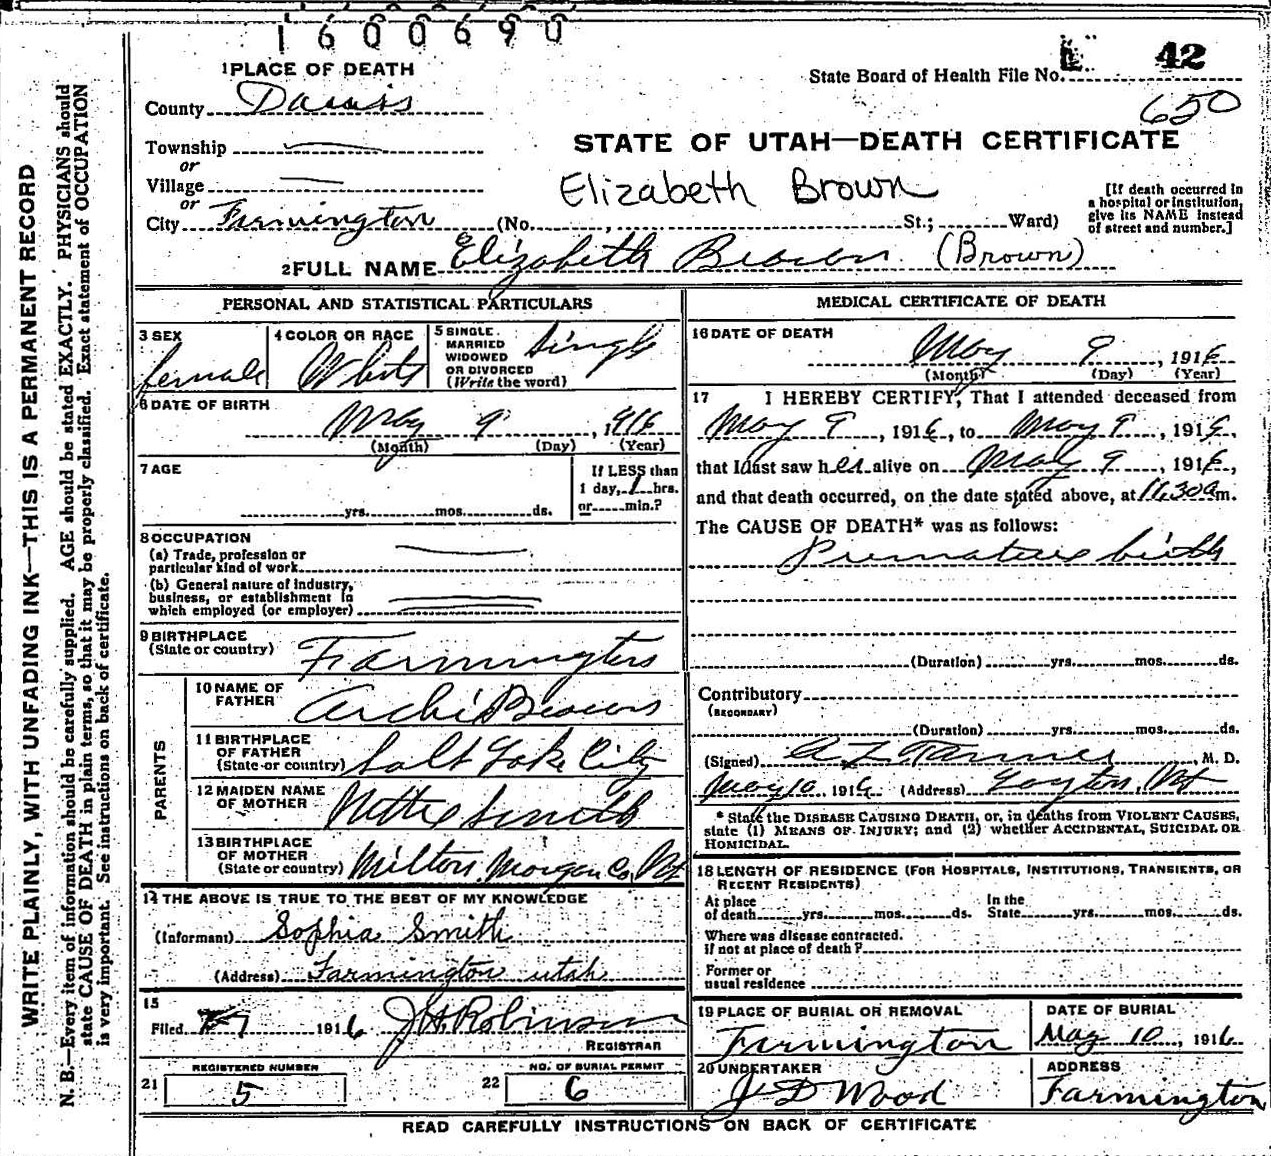 1600690
1 PLACE OF DEATH
State Board of Health File No. 42
County Davis
650
Township
STATE OF UTAH—DEATH CERTIFICATE
or
Village
Elizabeth Brown
or
City Farmington (No. , St.; Ward)
[If death occurred in
a hospital or institution,
give its NAME instead
of street and number.]
2 FULL NAME Elizabeth Brown (Brown)
PERSONAL AND STATISTICAL PARTICULARS
3 SEX
female
4 COLOR OR RACE
White
5 SINGLE.
MARRIED
WIDOWED
OR DIVORCED
(Write the word)
Single
6 DATE OF BIRTH
May 9, 1916
(Month) (Day) (Year)
7 AGE
yrs. mos. ds.
If LESS than
1 day, 1 hrs.
or min.?
8 OCCUPATION
(a) Trade, profession or
particular kind of work
(b) General nature of industry,
business, or establishment in
which employed (or employer)
9 BIRTHPLACE
(State or country) Farmington
PARENTS
10 NAME OF
FATHER Archi Brown
11 BIRTHPLACE
OF FATHER
(State or country) Salt Lake City
12 MAIDEN NAME
OF MOTHER Nettie Smith
13 BIRTHPLACE
OF MOTHER
(State or country) Milton Morgan Co. Ut
14 THE ABOVE IS TRUE TO THE BEST OF MY KNOWLEDGE
(Informant) Sophia Smith
(Address) Farmington utah
15
Filed 7 1916 J H Robinson
REGISTRAR
21 REGISTERED NUMBER
5
22 NO. OF BURIAL PERMIT
6
MEDICAL CERTIFICATE OF DEATH
16 DATE OF DEATH
May 9, 1916
(Month) (Day) (Year)
17 I HEREBY CERTIFY, That I attended deceased from
May 9, 1916, to May 9, 1916,
that I last saw her alive on May 9, 1916,
and that death occurred, on the date stated above, at 11.30 am.
The CAUSE OF DEATH* was as follows:
Premature birth
(Duration) yrs. mos. ds.
Contributory
(SECONDARY)
(Duration) yrs. mos. ds.
(Signed) A Z Tanner, M. D.
May 10 1916 (Address) Layton, Ut
* State the DISEASE CAUSING DEATH, or, in deaths from VIOLENT CAUSES,
state (1) MEANS OF INJURY; and (2) whether ACCIDENTAL, SUICIDAL OR
HOMICIDAL.
18 LENGTH OF RESIDENCE (FOR HOSPITALS, INSTITUTIONS, TRANSIENTS, OR
RECENT RESIDENTS)
At place
of death yrs. mos. ds.
In the
State yrs. mos. ds.
Where was disease contracted.
if not at place of death?
Former or
usual residence
19 PLACE OF BURIAL OR REMOVAL
Farmington
DATE OF BURIAL
May 10, 1916
20 UNDERTAKER
J D Wood
ADDRESS
Farmington
READ CAREFULLY INSTRUCTIONS ON BACK OF CERTIFICATE
WRITE PLAINLY, WITH UNFADING INK—THIS IS A PERMANENT RECORD
N. B.—Every item of information should be carefully supplied. AGE should be stated EXACTLY. PHYSICIANS should
state CAUSE OF DEATH in plain terms, so that it may be properly classified. Exact statement of OCCUPATION
is very important. See instructions on back of certificate.